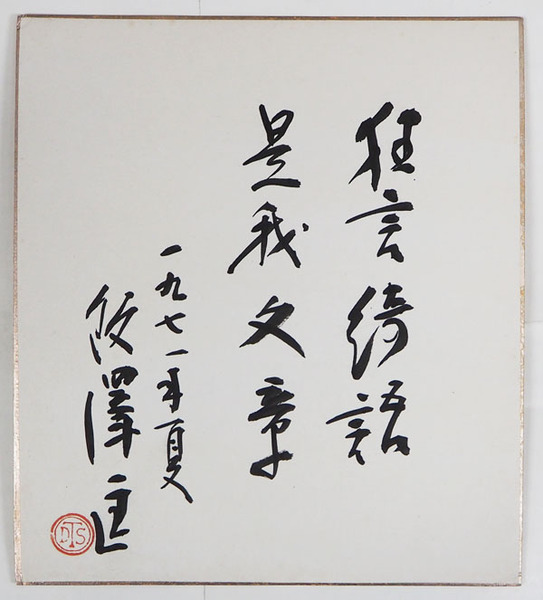 狂言綺語
是我文章
一九七一年夏
飯澤匡
DTS